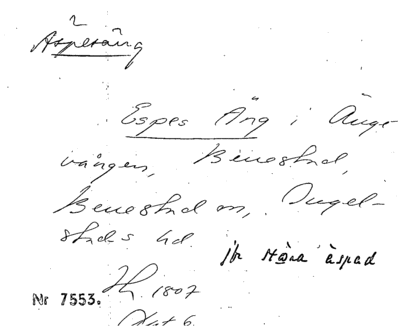 Äspesäng
Espes Äng i Änge
vången, Benestad,
Benestad sn, Ingel-
stads hd.
jfr Håra äspad
Nr 7553. 1807
Akt 6